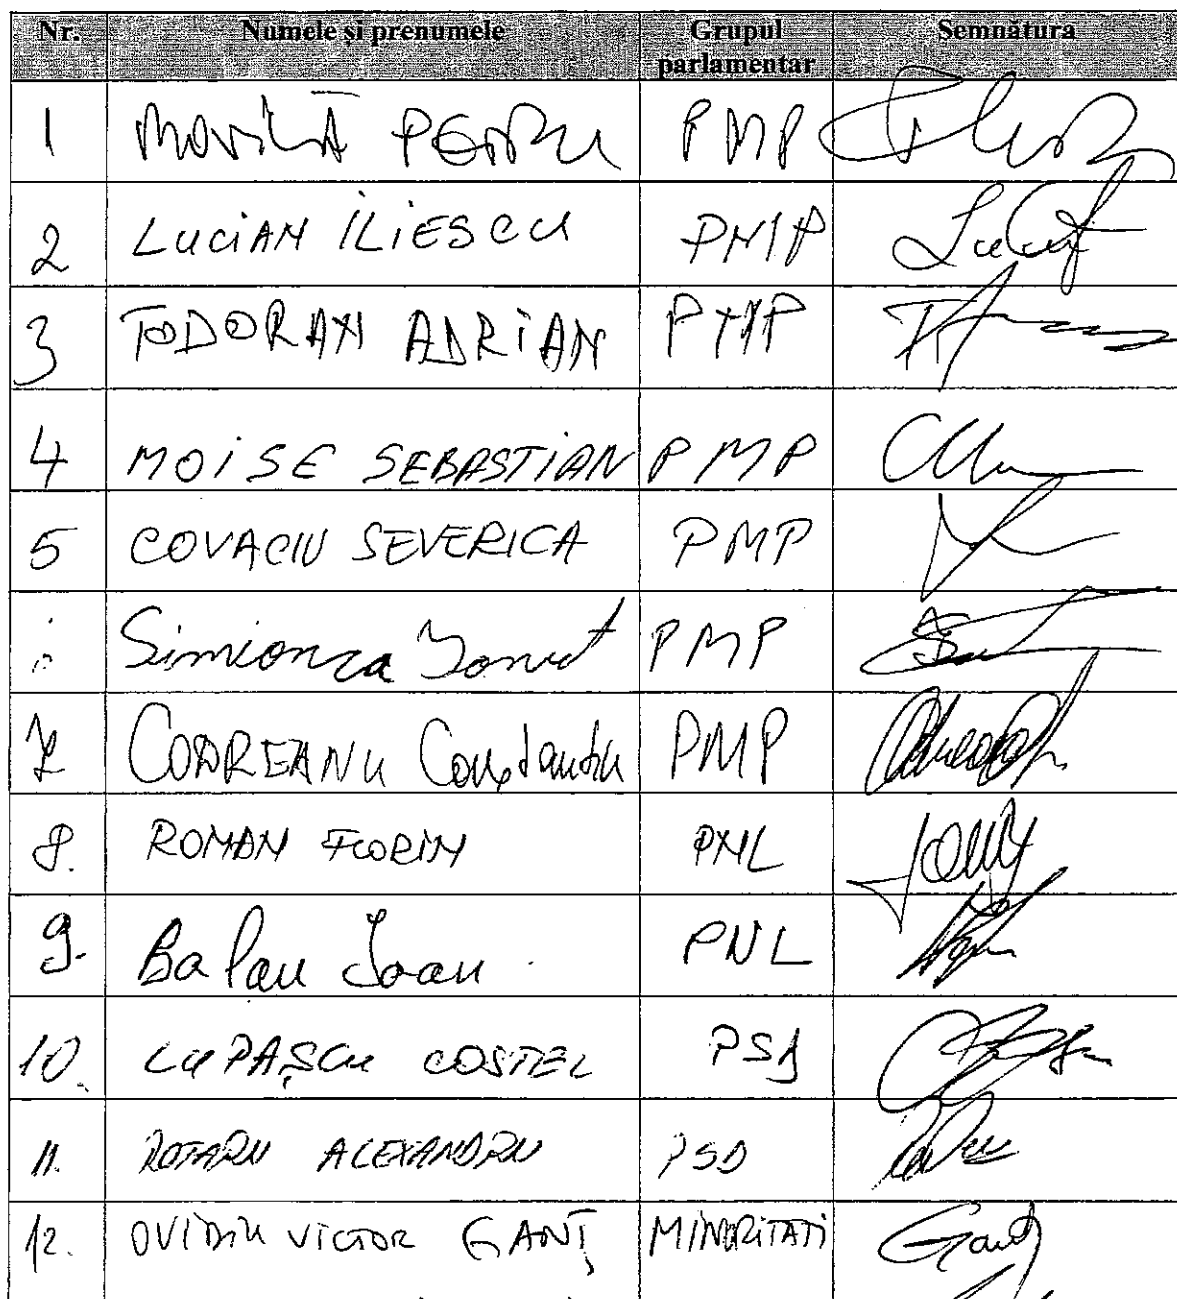 Nr. Numele și prenumele Grupul parlamentar Semnătura
1 MOVILĂ PETRU PMP
2 LUCIAN ILIESCU PMP
3 TODORAN ADRIAN PMP
4 MOISE SEBASTIAN PMP
5 COVACIU SEVERICA PMP
Simionca Ionuț PMP
7 CODREANU Constantin PMP
8. ROMAN FLORIN PNL
9. Balan Ioan PNL
10. LUPAȘCU COSTEL PSD
11. ROTARU ALEXANDRU PSD
12. OVIDIU VICTOR GANȚ MINORITATI Gant